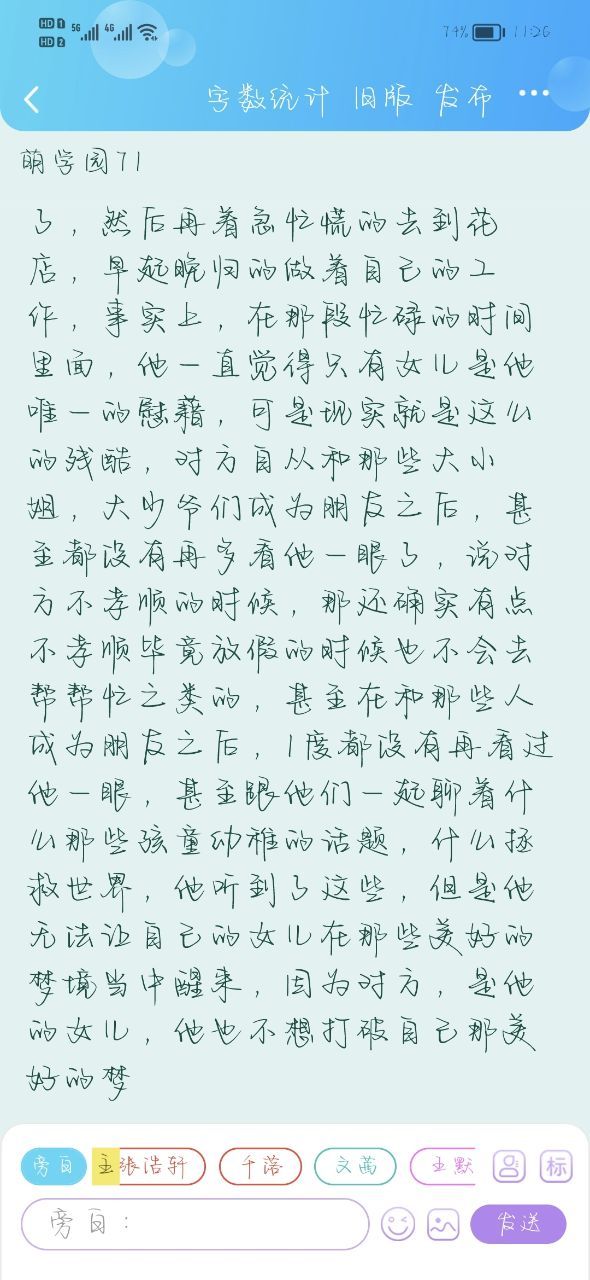 HD 1 5G 4G 74% 11:26
HD 2
字数统计 旧版 发布 •••
萌学园71
了，然后再着急忙慌的去到花
店，早起晚归的做着自己的工
作，事实上，在那段忙碌的时间
里面，他一直觉得只有女儿是他
唯一的慰藉，可是现实就是这么
的残酷，对方自从和那些大小
姐，大少爷们成为朋友之后，甚
至都没有再多看他一眼了，说对
方不孝顺的时候，那还确实有点
不孝顺毕竟放假的时候也不会去
帮帮忙之类的，甚至在和那些人
成为朋友之后，1度都没有再看过
他一眼，甚至跟他们一起聊着什
么那些孩童幼稚的话题，什么拯
救世界，他听到了这些，但是他
无法让自己的女儿在那些美好的
梦境当中醒来，因为对方，是他
的女儿，他也不想打破自己那美
好的梦
旁白 主 张浩轩 千落 文茜 王默 标
旁白： 发送